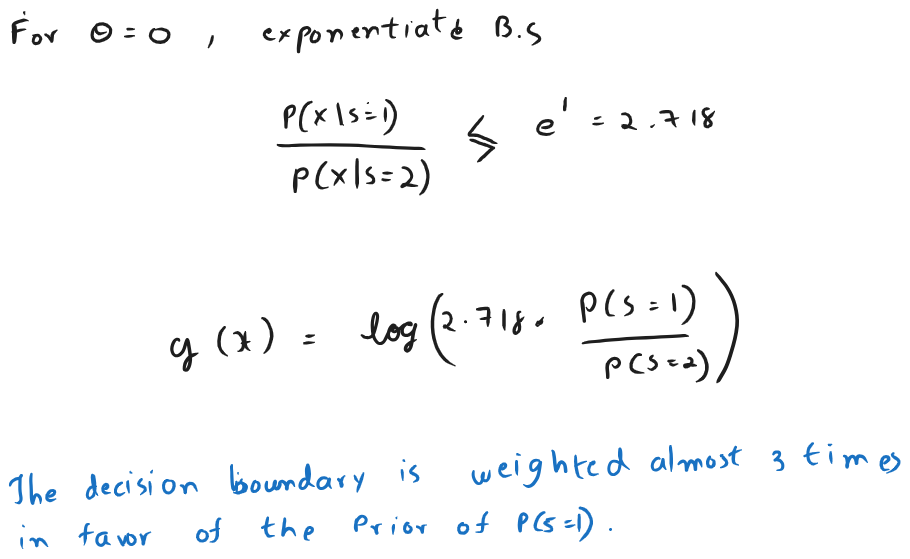 For Θ = 0 , exponentiate B.S
P(x|s=1) / P(x|s=2) ≶ e¹ = 2.718
g(x) = log(2.718 · P(s=1) / P(s=2))
The decision boundary is weighted almost 3 times
in favor of the Prior of P(s=1).